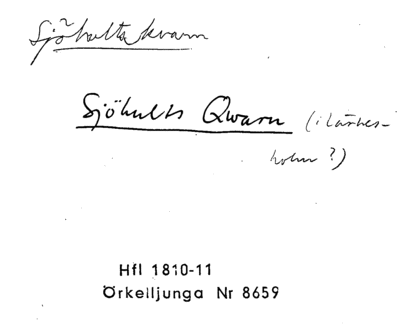 Sjöhultakvarn
Sjöhults Qwarn (i Lärkes-
holm ?)
Hfl 1810-11
Örkelljunga Nr 8659